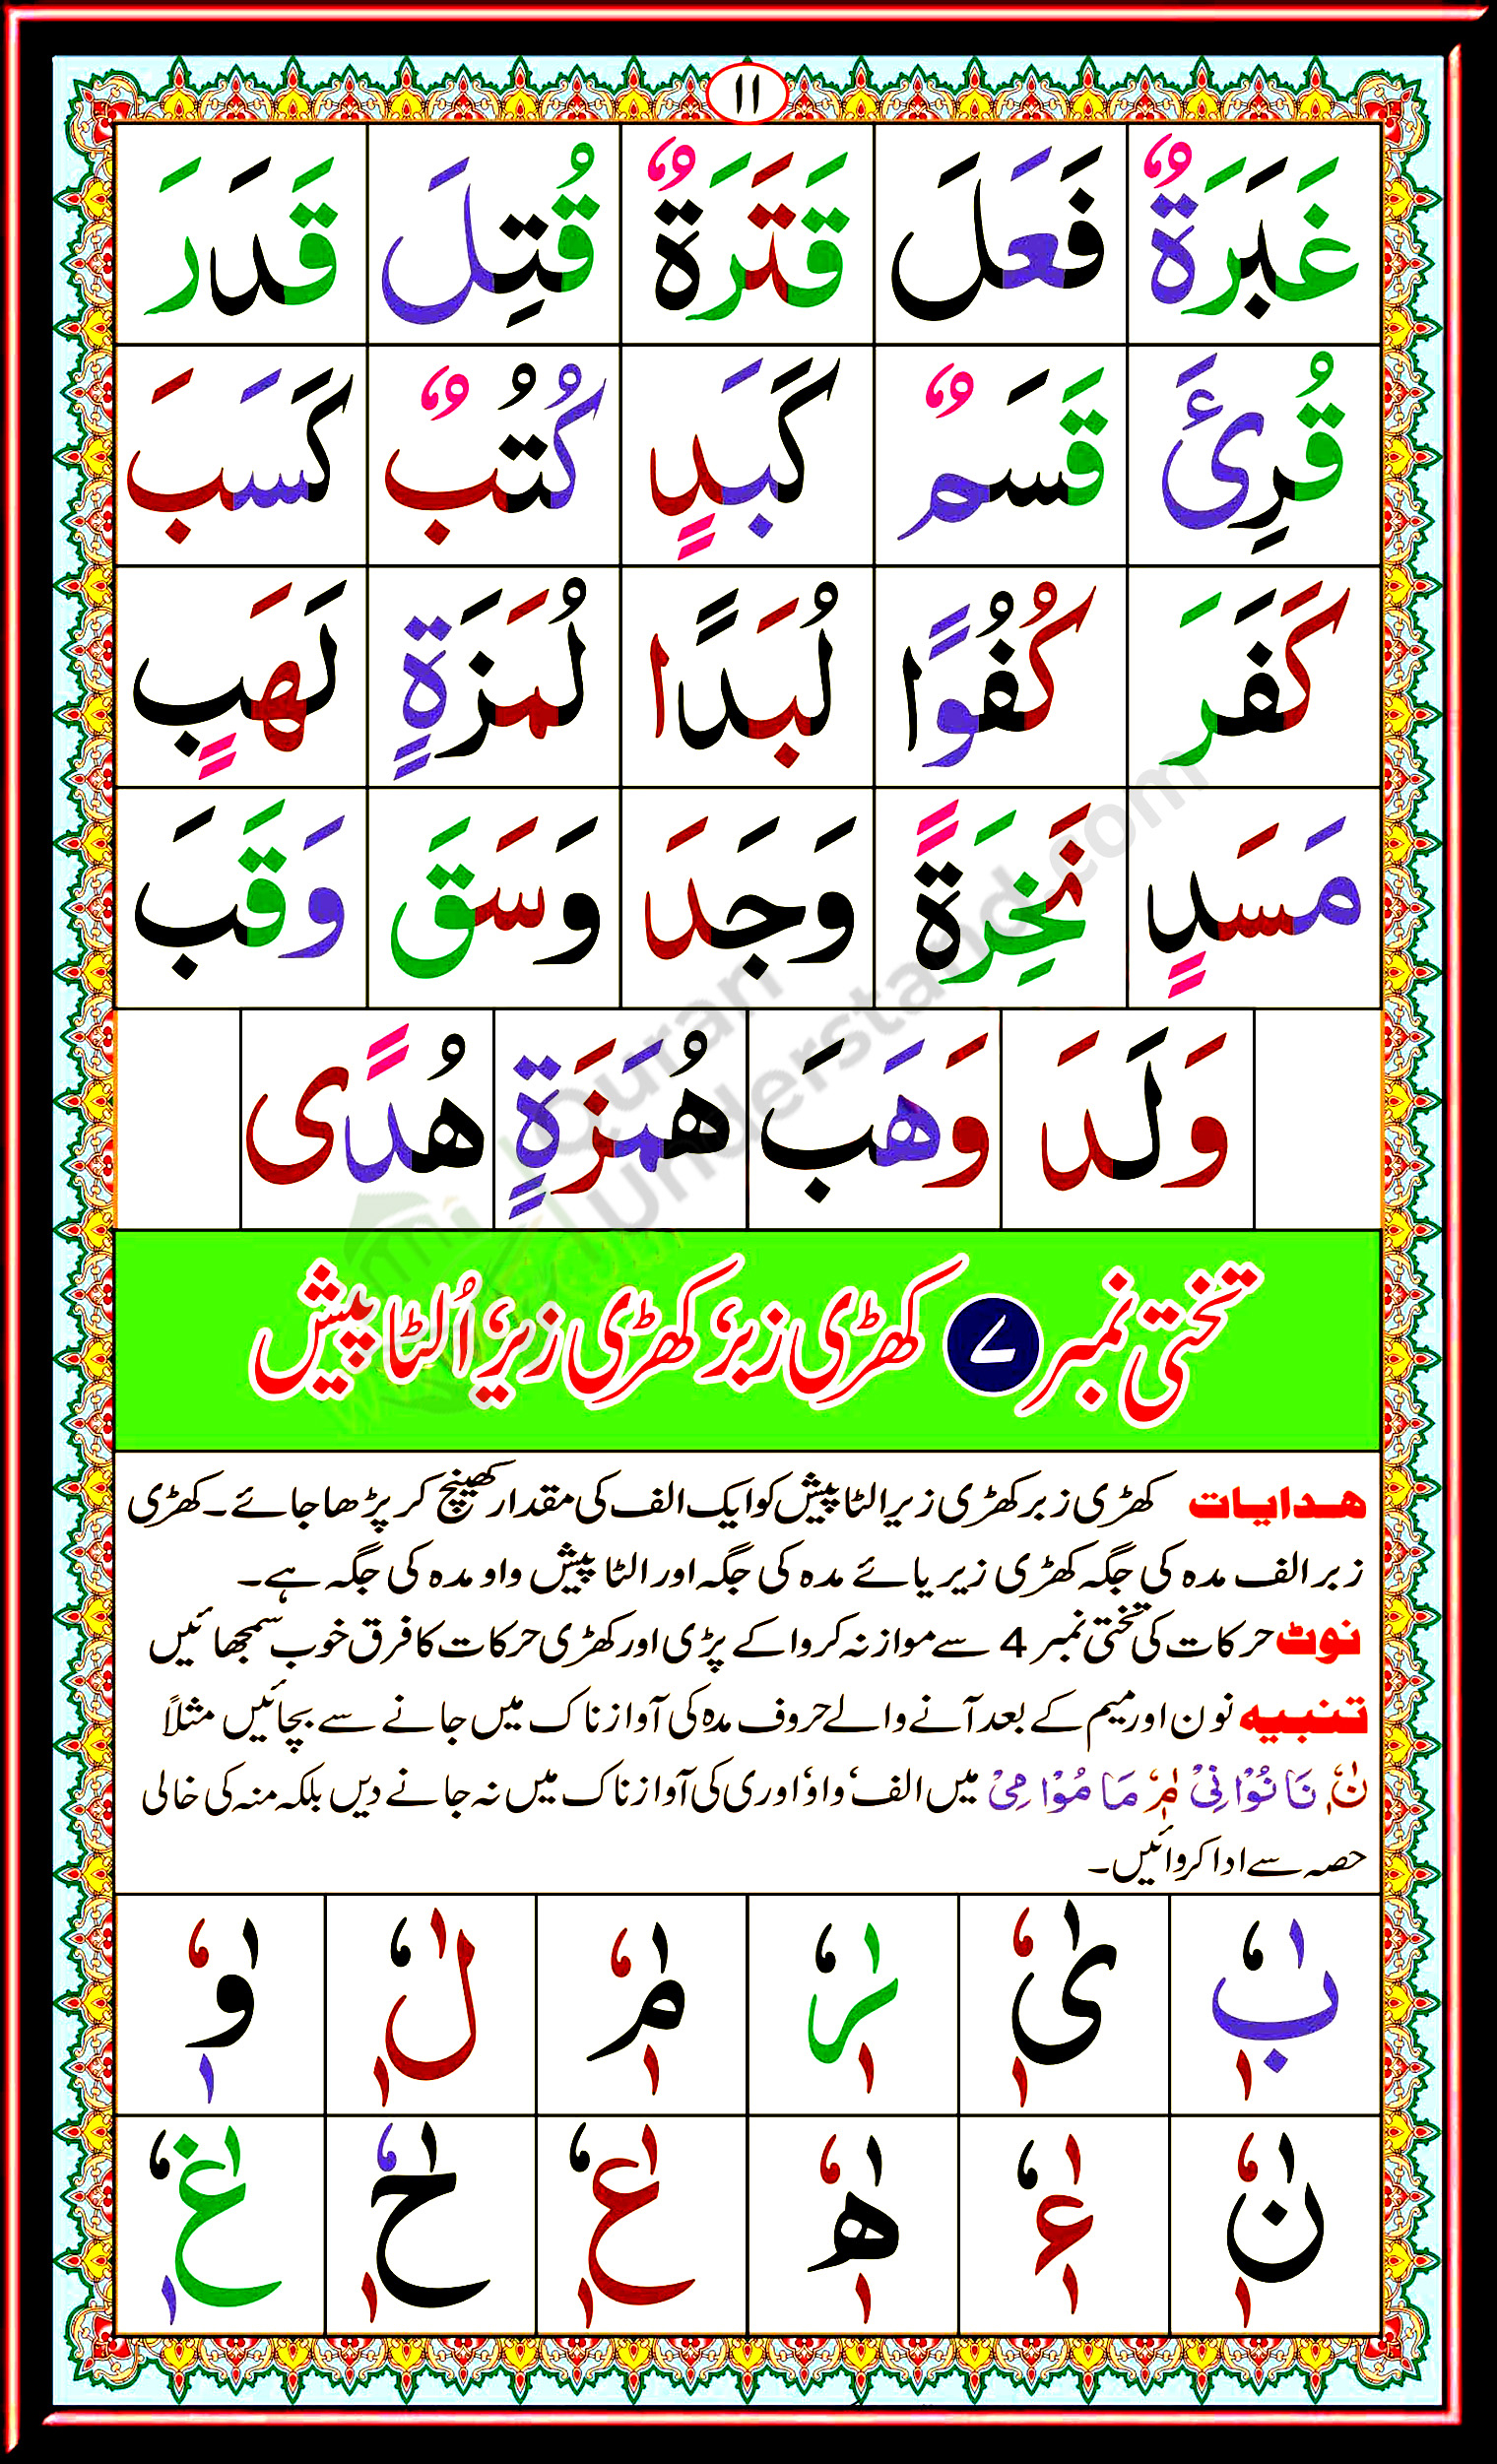 ۱۱
غَبَرَةٌ فَعَلَ قَتَرَةٌ قُتِلَ قَدَرَ
قُرِئَ قَسَمٌ كَبَدٍ كُتُبٌ كَسَبَ
كَفَرَ كُفُوًا لُبَدًا لُمَزَةٍ لَهَبٍ
مَسَدٍ نَخِرَةً وَجَدَ وَسَقَ وَقَبَ
وَلَدَ وَهَبَ هُمَزَةٍ هُدًى
تختی نمبر ۷ کھڑی زبر، کھڑی زیر، اُلٹا پیش
ھدایات کھڑی زبر کھڑی زیر الٹا پیش کو ایک الف کی مقدار کھینچ کر پڑھا جائے۔ کھڑی
زبر الف مدہ کی جگہ کھڑی زیر یائے مدہ کی جگہ اور الٹا پیش واو مدہ کی جگہ ہے۔
نوٹ حرکات کی تختی نمبر 4 سے موازنہ کروا کے پڑی اور کھڑی حرکات کا فرق خوب سمجھائیں
تنبیہ نون اور میم کے بعد آنے والے حروف مدہ کی آواز ناک میں جانے سے بچائیں مثلاً
نٰٖٗ نَا نُوْا نِیْ مٰٖٗ مَا مُوْا مِیْ میں الف، واو، اور ی کی آواز ناک میں نہ جانے دیں بلکہ منہ کی خالی
حصہ سے ادا کروائیں۔
بٰٖٗ یٰٖٗ رٰٖٗ مٰٖٗ لٰٖٗ وٰٖٗ
نٰٖٗ ءٰٖٗ هٰٖٗ عٰٖٗ حٰٖٗ غٰٖٗ
Quran
Understand.com